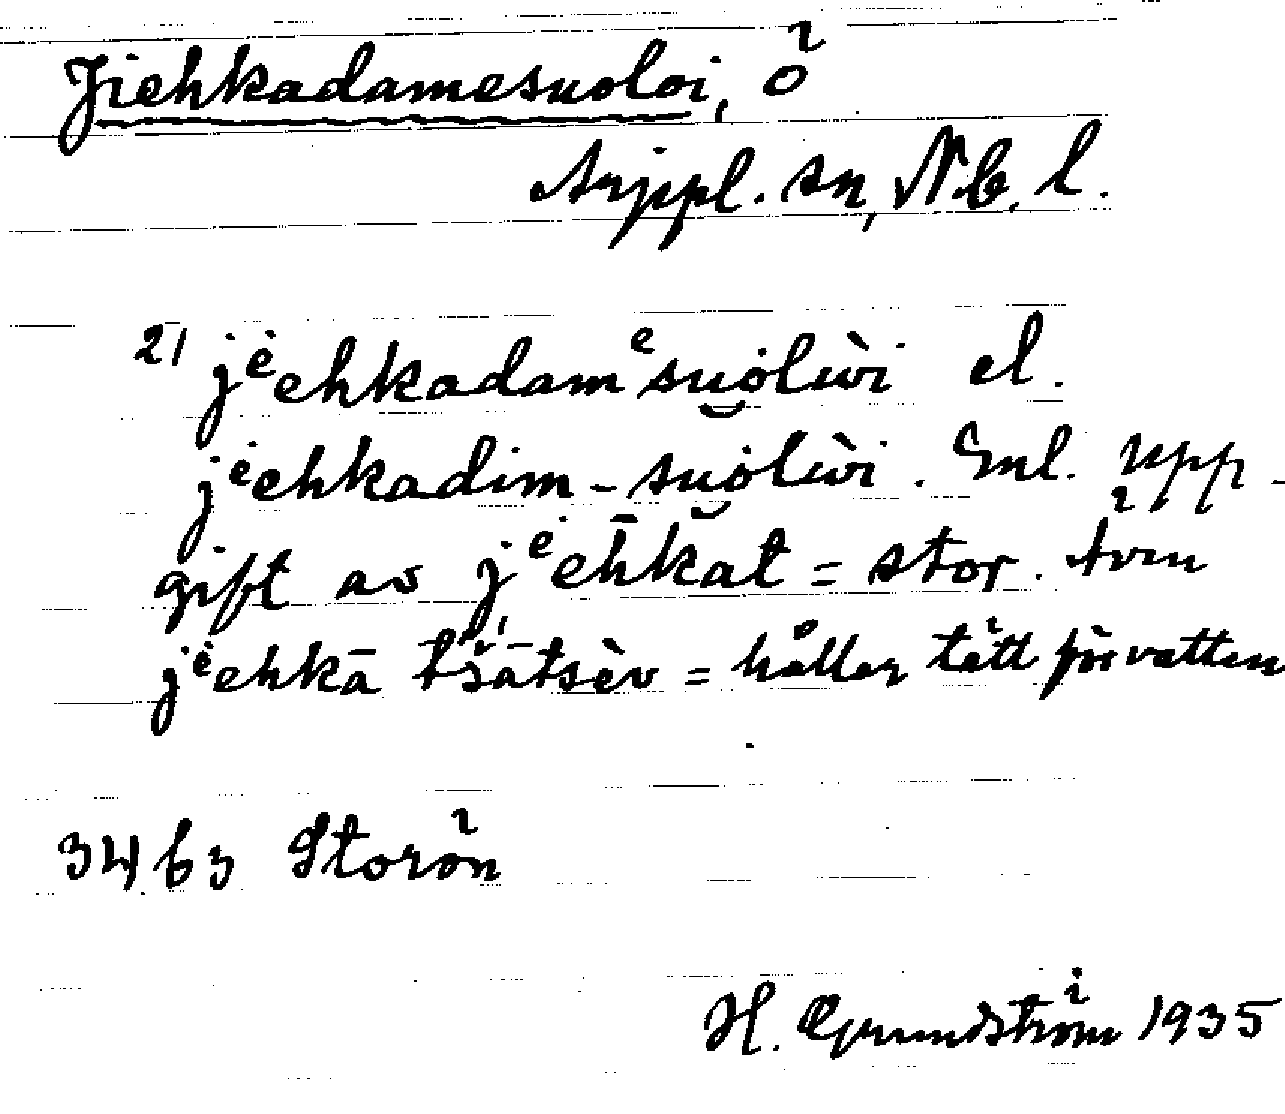 Jiehkadamesuoloi, ö
Arjepl. sn, Nb. l.
21 jėehkadamᵉsuȯlùi el.
jėehkadim-suȯlùi. Enl. upp-
gift av jėēhkat = stor. Även
jėehkā tšātsèv = håller tätt för vatten
3463 Storön
H. Grundström 1935